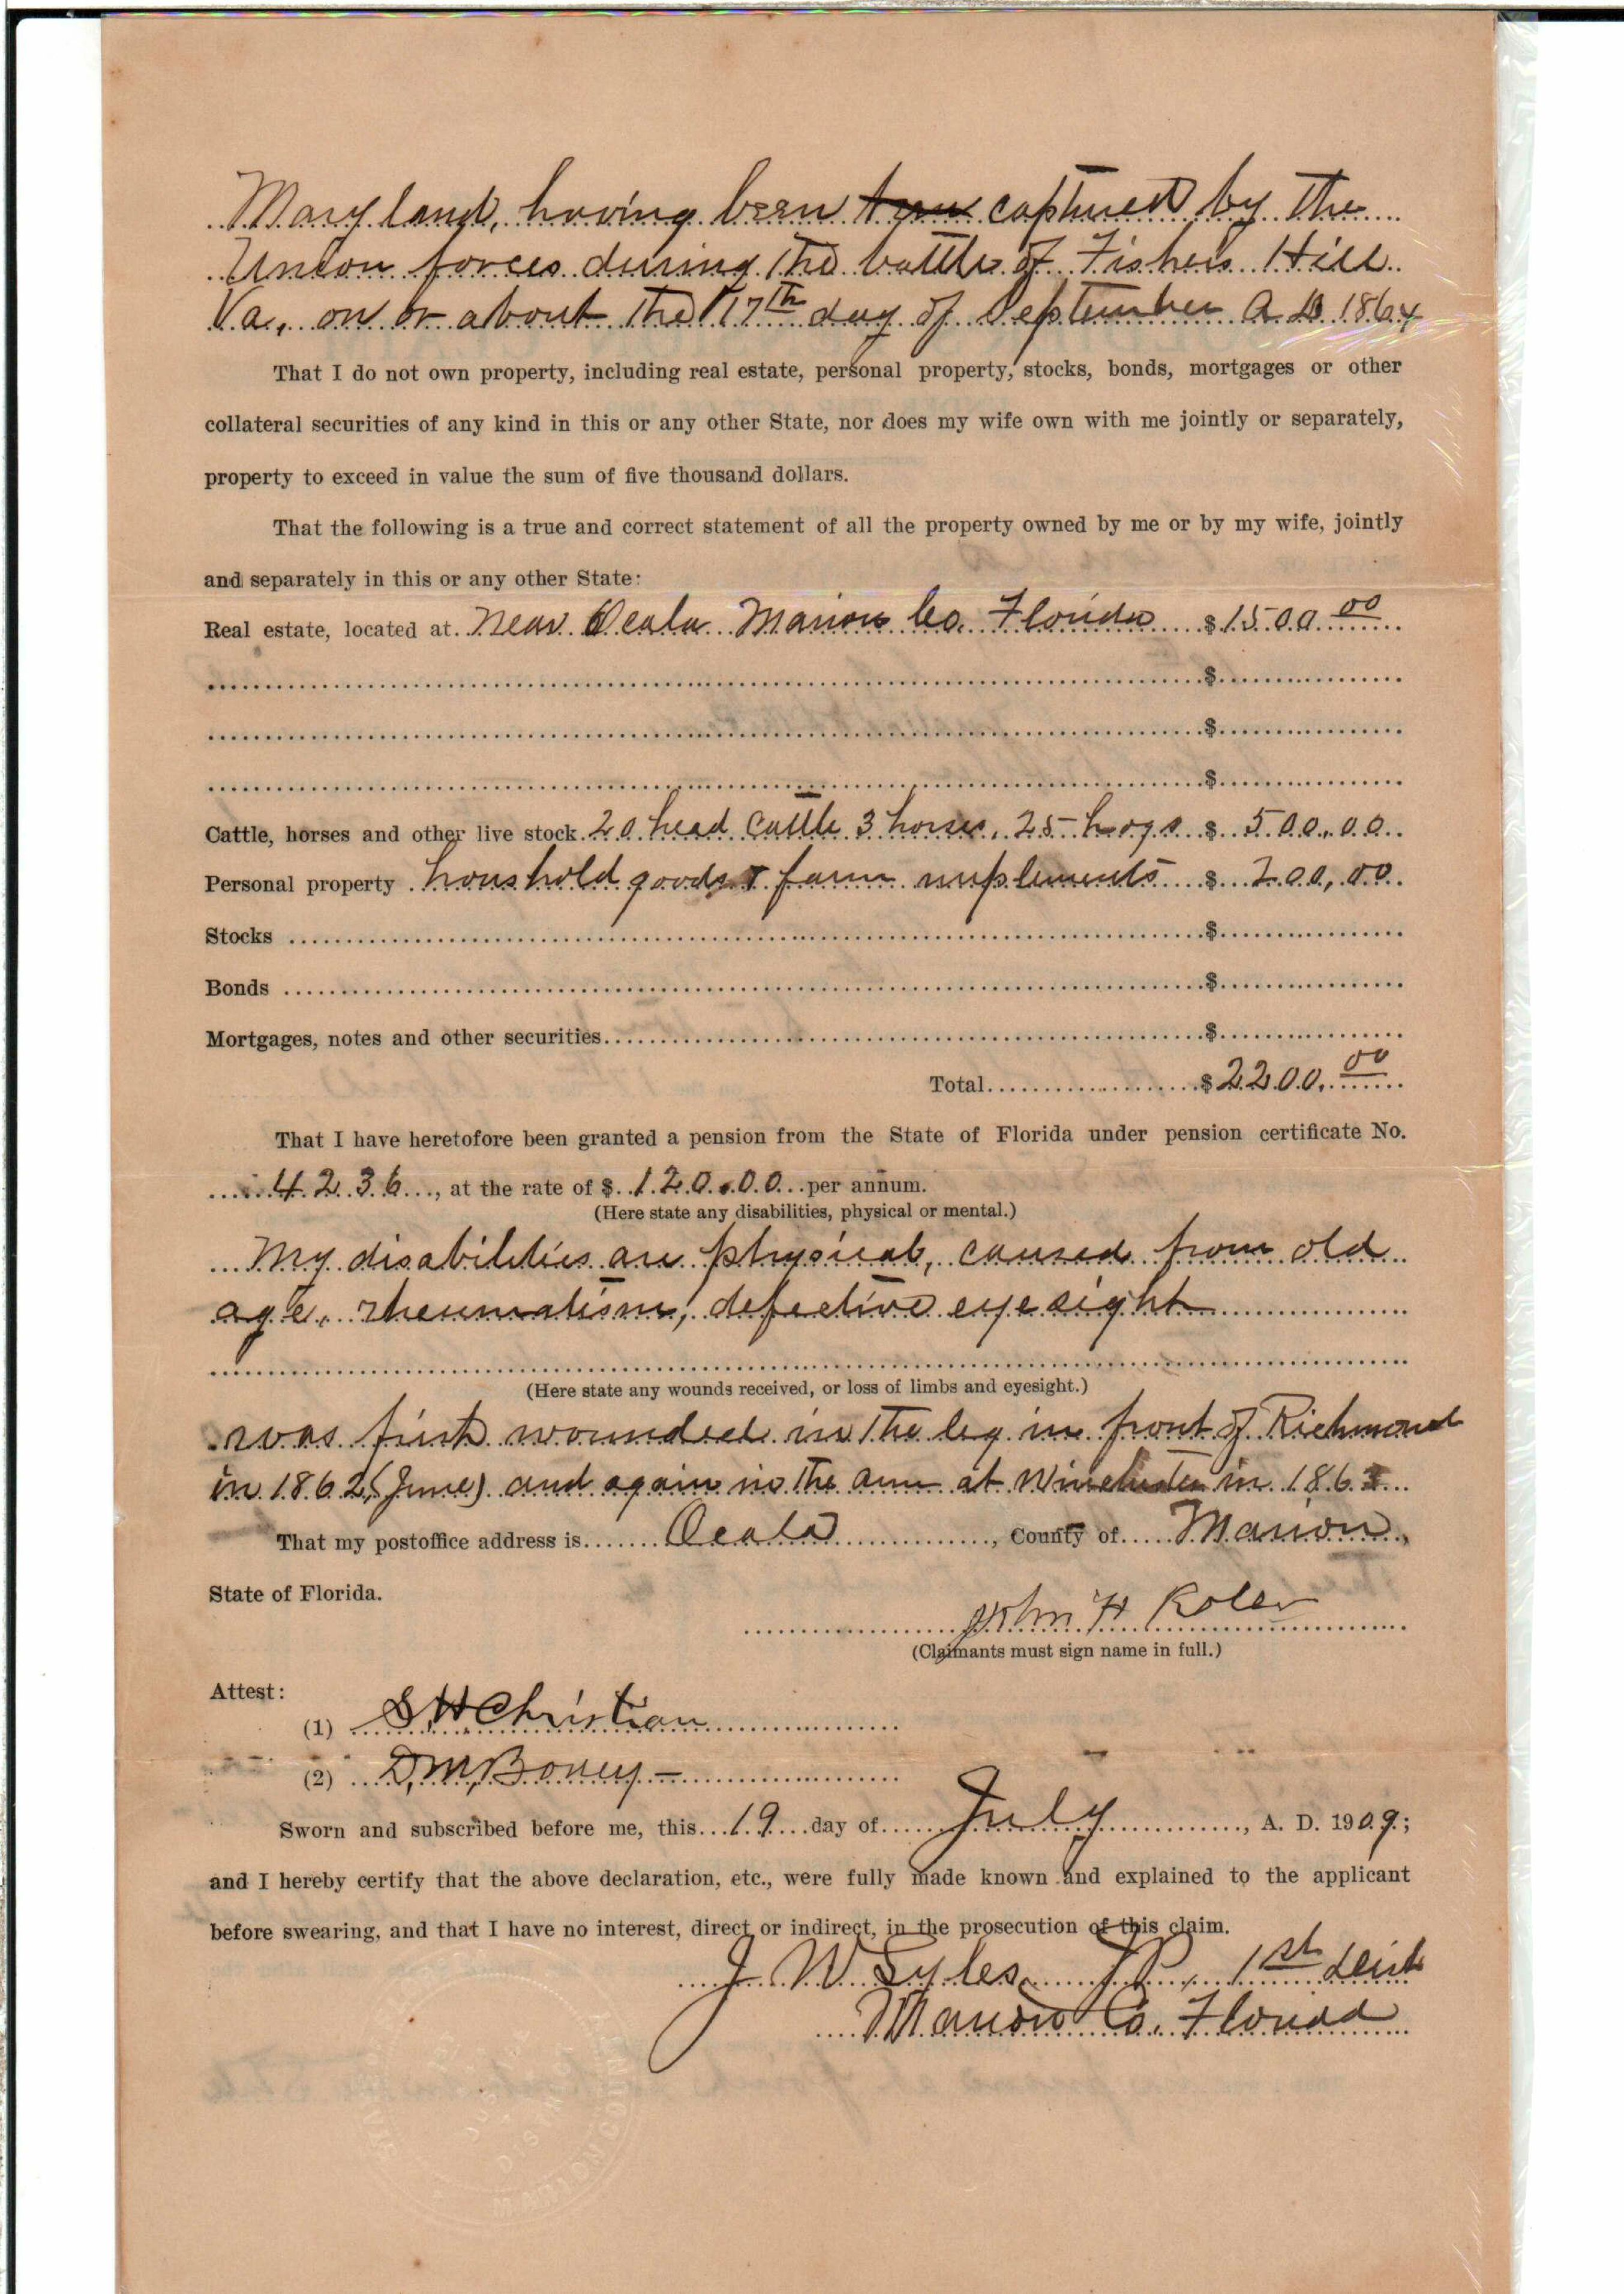 Maryland, having been captured by the
Union forces during the battle of Fishers Hill
Va, on or about the 17th day of September A D 1864
That I do not own property, including real estate, personal property, stocks, bonds, mortgages or other
collateral securities of any kind in this or any other State, nor does my wife own with me jointly or separately,
property to exceed in value the sum of five thousand dollars.
That the following is a true and correct statement of all the property owned by me or by my wife, jointly
and separately in this or any other State:
Real estate, located at Near Ocala Marion Co. Florida $1500.00
$
$
$
Cattle, horses and other live stock 20 head Cattle 3 horses, 25 hogs $ 500.00
Personal property houshold goods & farm implements $ 200.00
Stocks $
Bonds $
Mortgages, notes and other securities $
Total $2200.00
That I have heretofore been granted a pension from the State of Florida under pension certificate No.
4236, at the rate of $ 120.00 per annum.
(Here state any disabilities, physical or mental.)
My disabilities are physical, caused from old
age, rheumatism, defective eyesight
(Here state any wounds received, or loss of limbs and eyesight.)
was first wounded in the leg in front of Richmond
in 1862 (June) and again in the arm at Winchester in 1863
That my postoffice address is Ocala, County of Marion,
State of Florida.
John H Roler
(Claimants must sign name in full.)
Attest:
(1) S H Christian
(2) D. M. Boney
Sworn and subscribed before me, this 19 day of July, A. D. 1909;
and I hereby certify that the above declaration, etc., were fully made known and explained to the applicant
before swearing, and that I have no interest, direct or indirect, in the prosecution of this claim.
J W Lyles J P, 1st Dist
Marion Co. Florida
MARION COUNTY